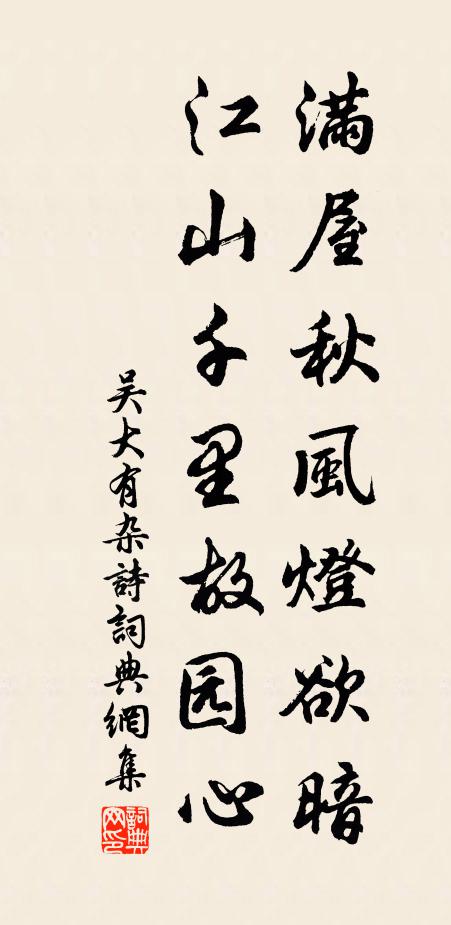 满屋秋風燈欲暗
江山千里故园心
吴大有杂詩詞典網集
詞典网印